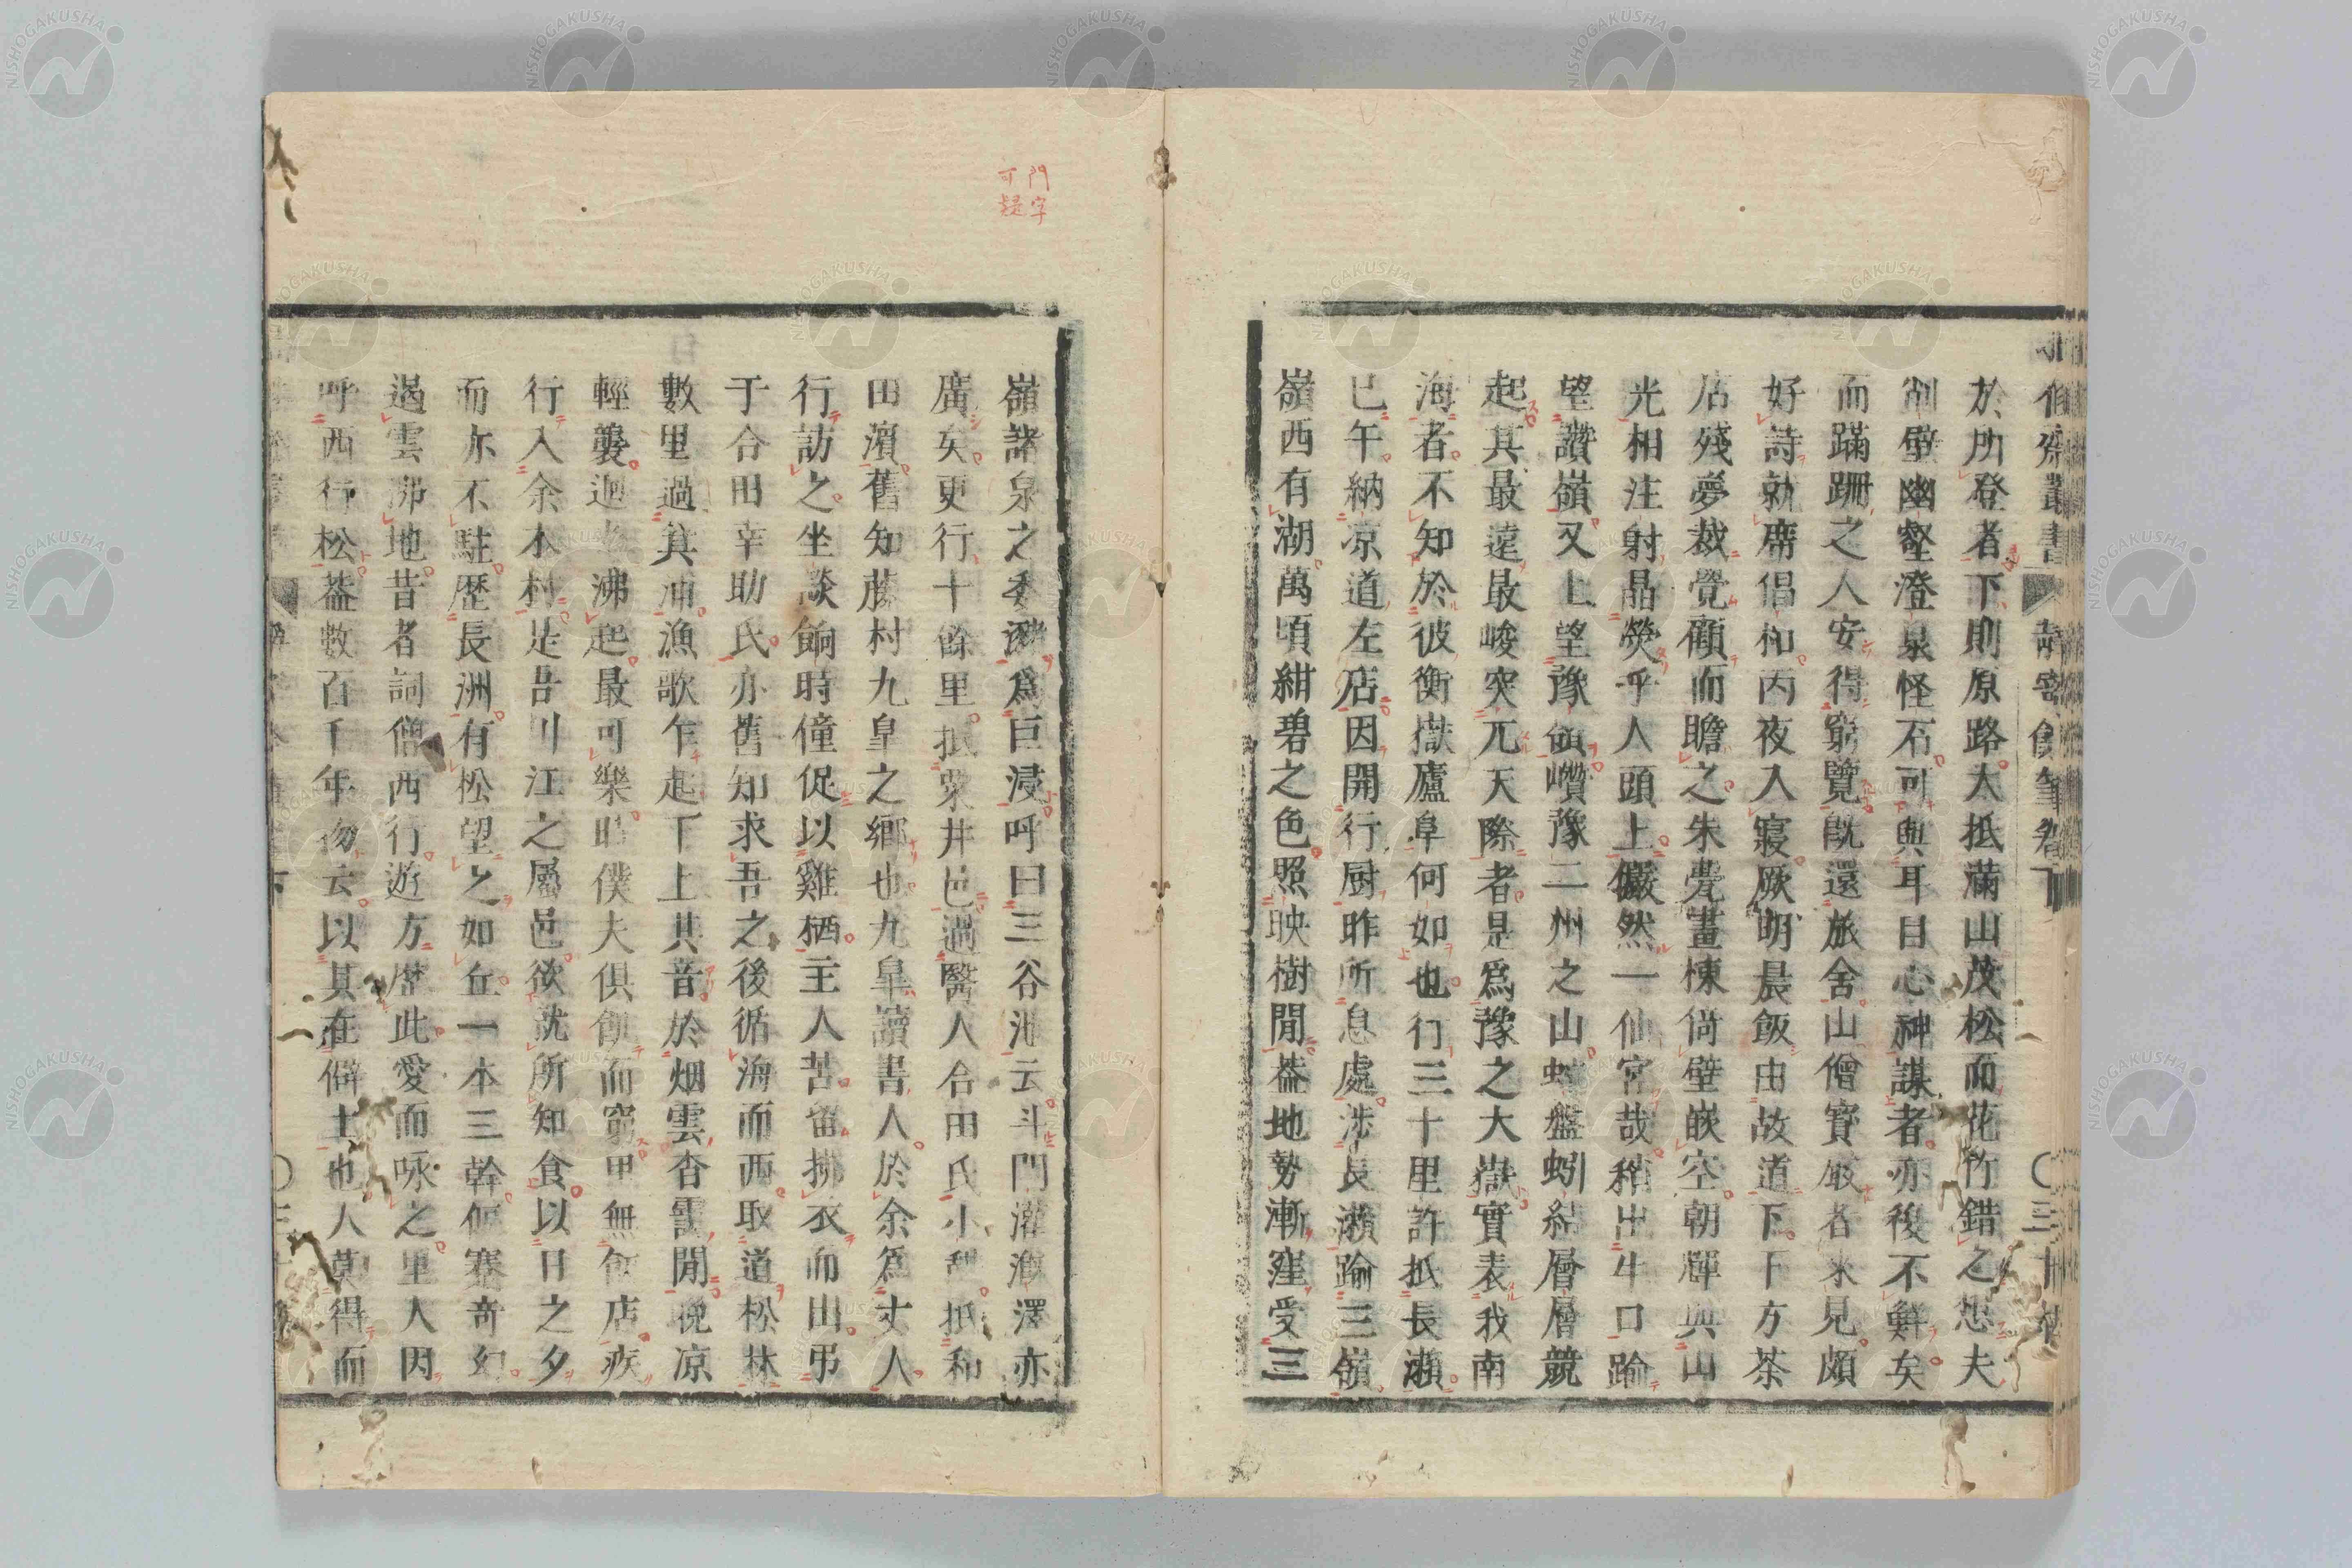 於所登者下則原路大抵滿山茂松而花竹錯之想夫
削壁幽壑澄泉怪石可與耳目心神謀者亦後不鮮矣
而蹣跚之人安得窮覽既還旅舍山僧實嚴者來見頗
好詩就席倡和丙夜入寢厥明晨飯由故道下下方茶
店殘夢裁覺顧而瞻之朱甍畫棟倚壁嵌空朝輝與山
光相注射晶熒乎人頭上儼然一仙宮哉稍出牛口踰
望讚嶺又上望豫嶺巑豫二州之山蟠盤蚓結層層競
起其最遠最峻突兀天際者是爲豫之大嶽實表我南
海者不知於彼衡嶽廬阜何如也行三十里許抵長瀬
已午納凉道左店因開行厨昨所息處涉長瀬踰三嶺
嶺西有湖萬頃紺碧之色照映樹間葢地勢漸窪受三
嶺諸泉之委瀦爲巨浸呼曰三谷池云斗門灌漑澤亦
廣矣更行十餘里抵粟井邑過醫人合田氏小憩抵和
田濱舊知藤村九皐之鄉也九皐讀書人於余爲丈人
行訪之坐談餉時僮促以雞栖主人苦留拂衣而出弔
于合田幸助氏亦舊知求吾之後循海而西取道松林
數里過箕浦漁歌乍起下上其音於烟雲杳靄間晚凉
輕襲迎 沸起最可樂時僕夫俱飢而窮里無飯店疾
行入余木村是吾川江之屬邑欲就所知食以日之夕
而亦不駐歷長洲有松望之如丘一本三幹偃蹇奇幻
遏雲沸地昔者詞僧西行遊方歷此愛而咏之里人因
呼西行松葢數百千年物云以其在僻土也人莫得而
門字
可疑
NISHOGAKUSHA